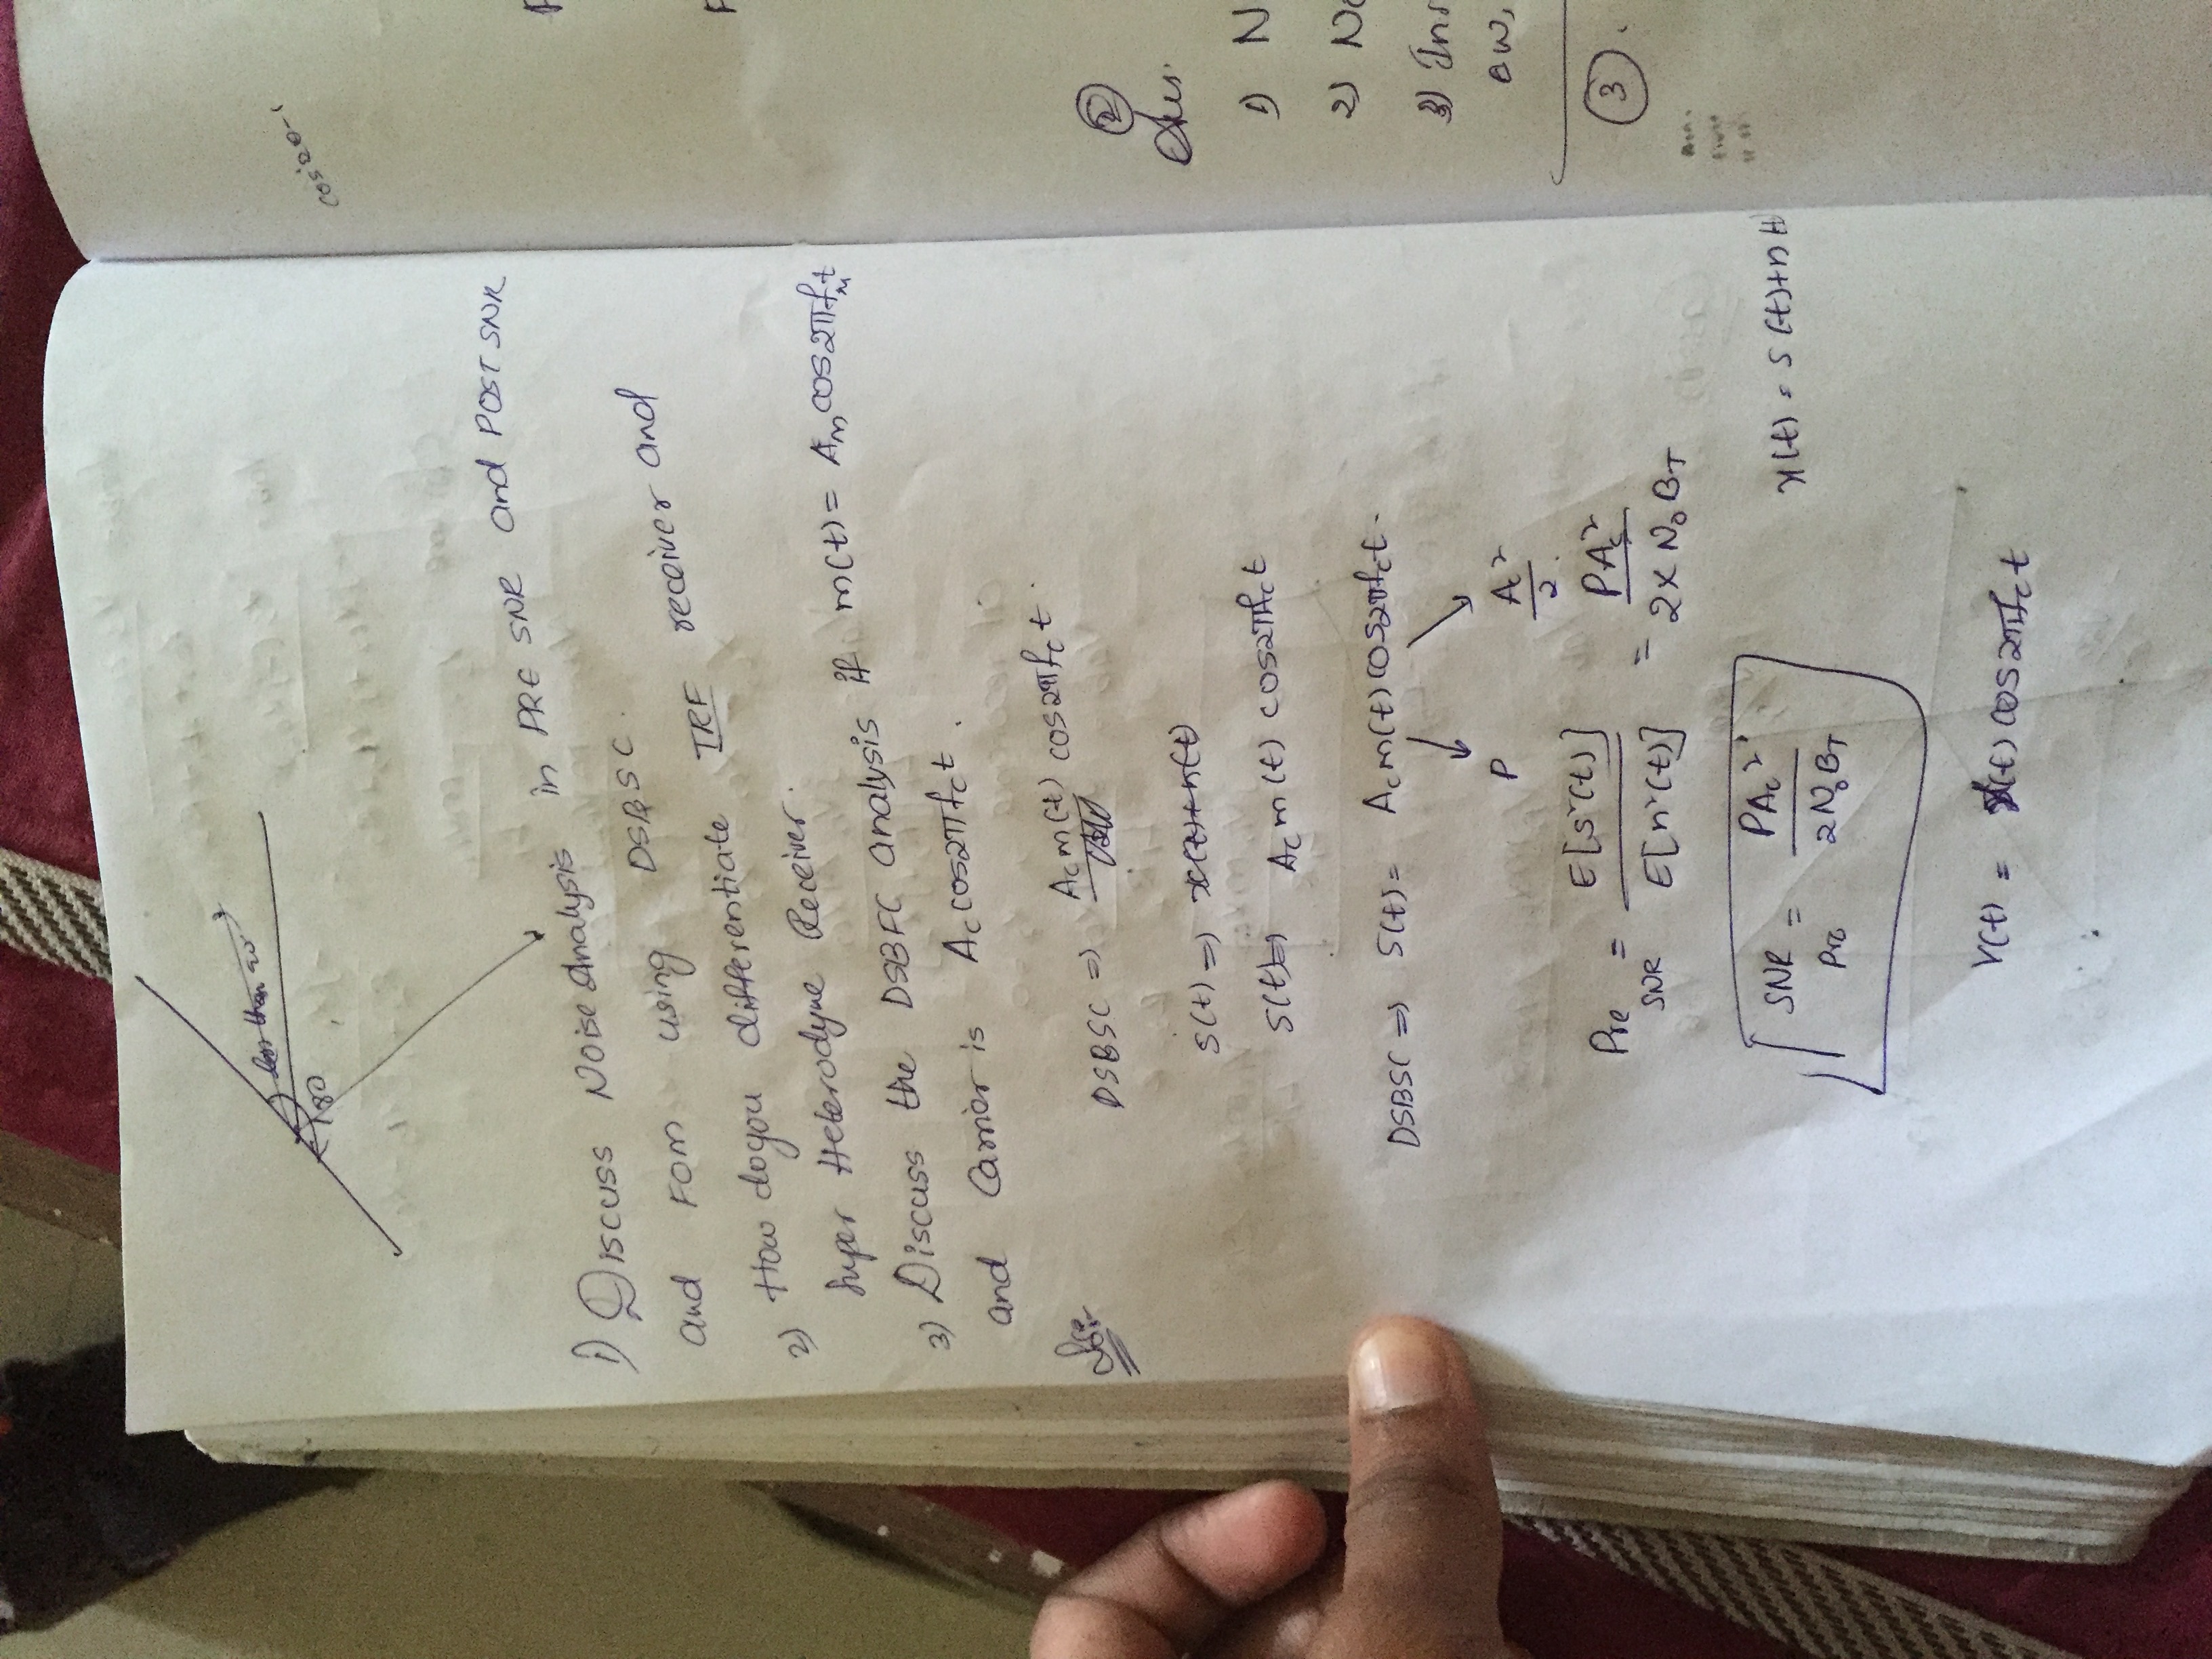 less than 90°
180
1) Discuss Noise Analysis in PRE SNR and POST SNR
and FOM using DSBSC.
2) How do you differentiate TRF receiver and
Super Heterodyne Receiver.
3) Discuss the DSBFC analysis if m(t) = Am cos2πfmt
and Carrier is Ac cos2πfct.
Sol:-
DSBSC => Ac m(t) cos2πfct.
s(t) => x(t)+n(t)
s(t) => Ac m(t) cos2πfct
DSBSC => S(t) = Ac m(t) cos2πfct.
P Ac²/2.
Pre SNR = E[s²(t)] / E[n²(t)] = PAc² / 2 x N₀ BT
SNR Pre = PAc² / 2N₀BT
x(t) = s(t)+n(t)
V(t) = x(t) cos2πfct
cos2θ-1
2
Ans.
1) N
2) No
3) Ins
3.